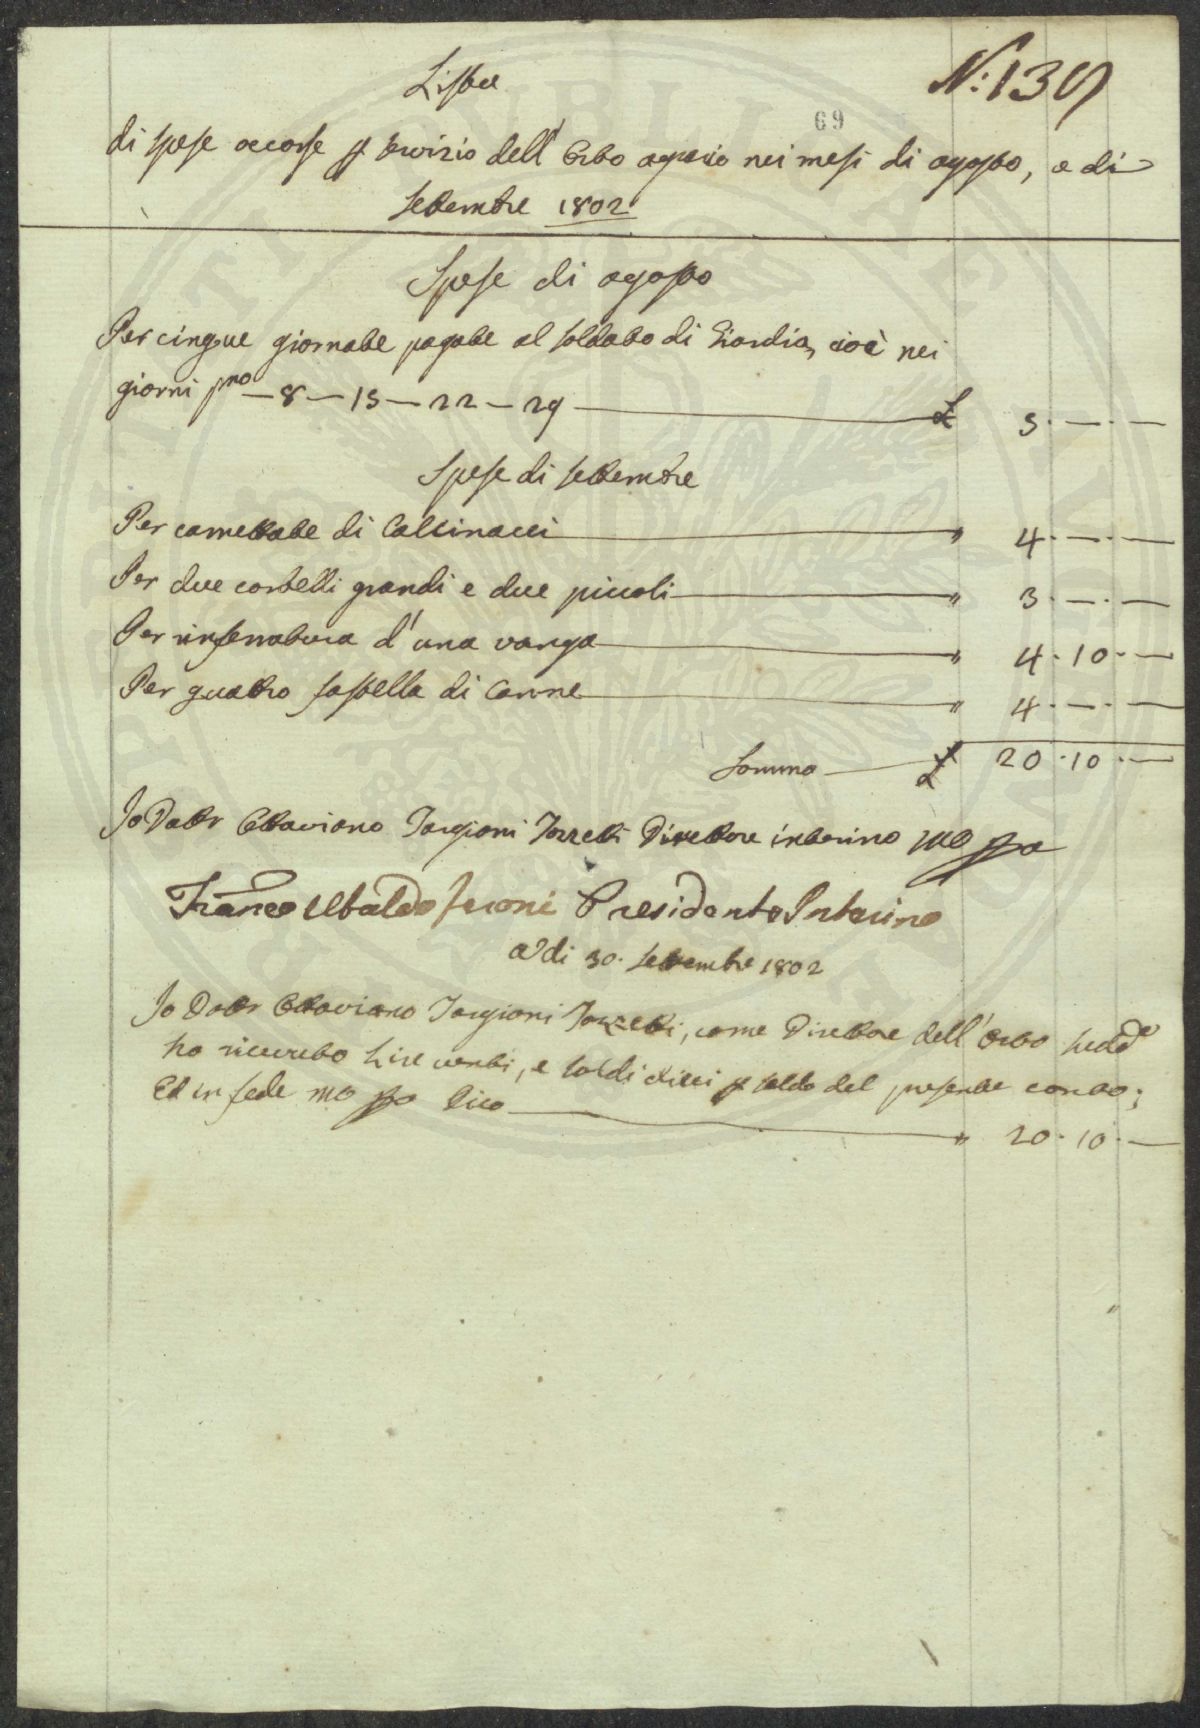 N: 139
Lista
69
di spese occorse p servizio dell' Orto agrario nei mesi di agosto, e di
Settembre 1802
Spese di agosto
Per cinque giornate pagate al soldato di Guardia, cioè nei
giorni pmo — 8 — 15 — 22 — 29 — £ 5. — . —
Spese di settembre
Per carrettate di Calcinacci — " 4. — . —
Per due corbelli grandi e due piccoli — " 3. — . —
Per rinferratura d' una vanga — " 4. 10. —
Per quattro fastella di Canne — " 4. — . —
Somma — £ 20. 10. —
Io Dottr Ottaviano Targioni Tozzetti Direttore interino mo ppa
Franco Ubaldo Feroni Presidente Interino
A dì 30. Settembre 1802
Io Dottr Ottaviano Targioni Tozzetti, come Direttore dell' Orto sudd.o
ho ricevuto Lire venti, e soldi dieci p saldo del presente conto;
Ed in fede mo ppa dico — " 20. 10. —